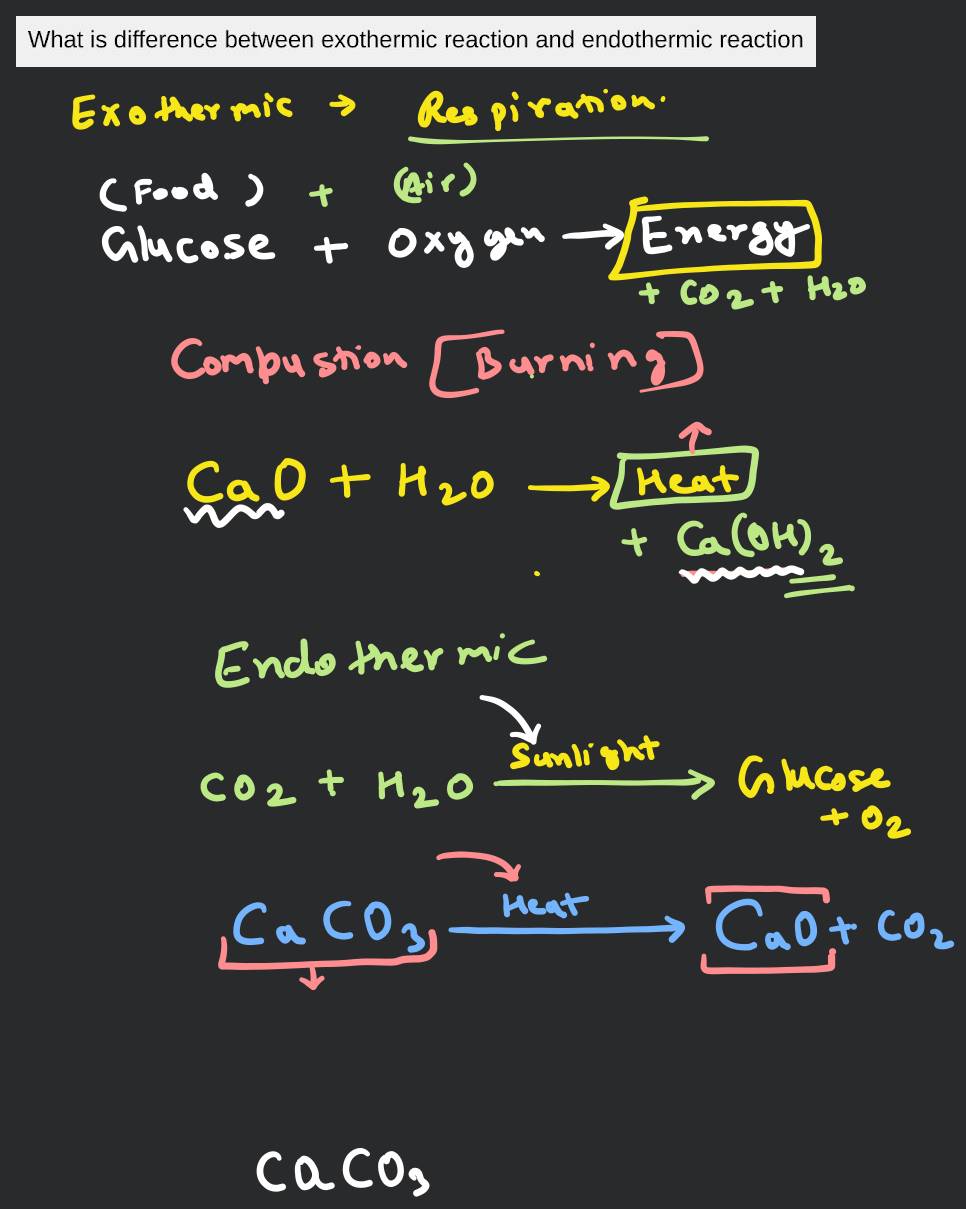 What is difference between exothermic reaction and endothermic reaction
Exothermic → Respiration.
(Food) + (Air)
Glucose + Oxygen → Energy
+ CO₂ + H₂O
Combustion [Burning]
CaO + H₂O → Heat ↑
+ Ca(OH)₂
Endothermic
Sunlight
CO₂ + H₂O → Glucose
+ O₂
Heat
CaCO₃ → CaO + CO₂
CaCO₃